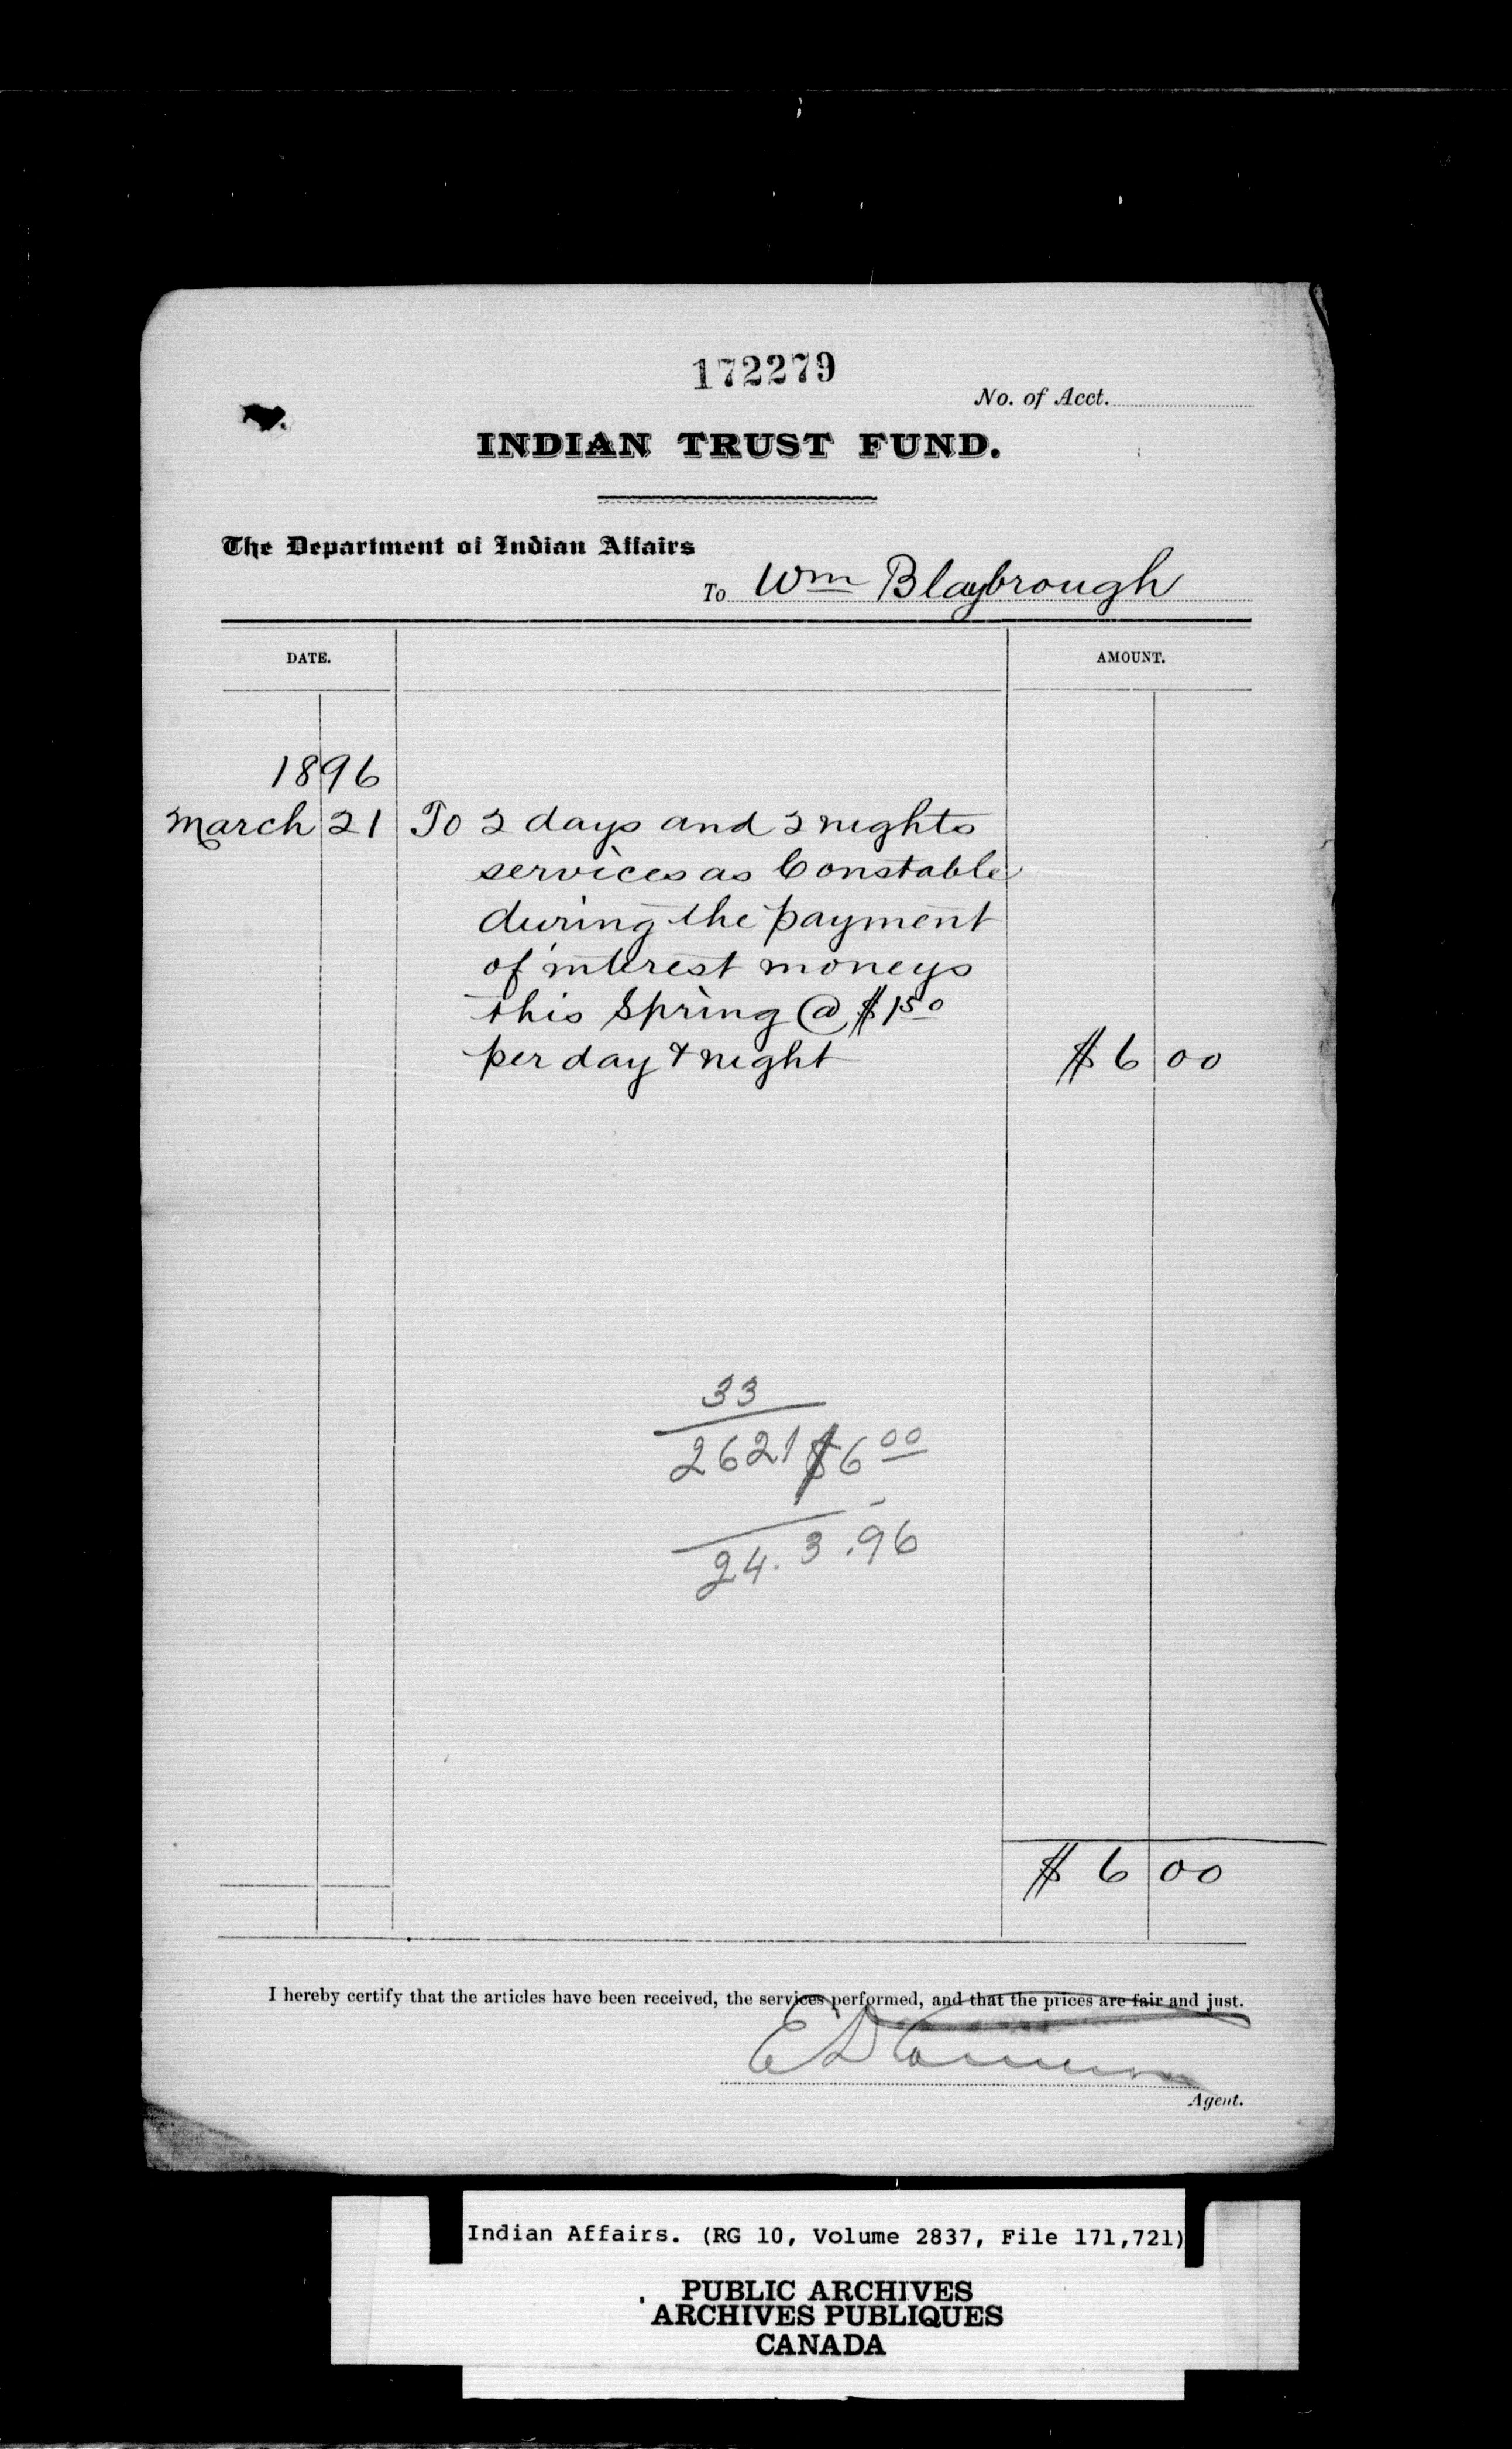 172279
No. of Acct.
INDIAN TRUST FUND.
The Department of Indian Affairs
To Wm Blaybrough
DATE. AMOUNT.
1896
March 21 To 2 days and 2 nights
services as Constable
during the payment
of interest moneys
this Spring @ $1.50
per day & night $6 00
33
2621 $6 00
24.3.96
$6 00
I hereby certify that the articles have been received, the services performed, and that the prices are fair and just.
E D Cameron
Agent.
Indian Affairs. (RG 10, Volume 2837, File 171,721)
PUBLIC ARCHIVES
ARCHIVES PUBLIQUES
CANADA